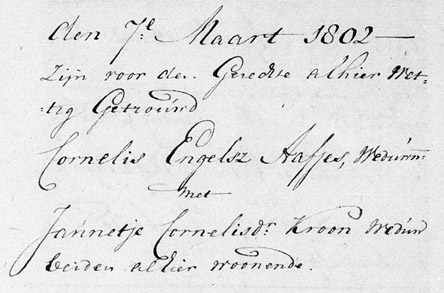 den 7e Maart 1802 —
Zijn voor de. Gerechte alhier Wet-
-tig Getroúwd
Cornelis Engelsz Aafjes, Wedúwnr
met
Jannetje Cornelisdr Kroon Wedúw
beiden alhier woonende.